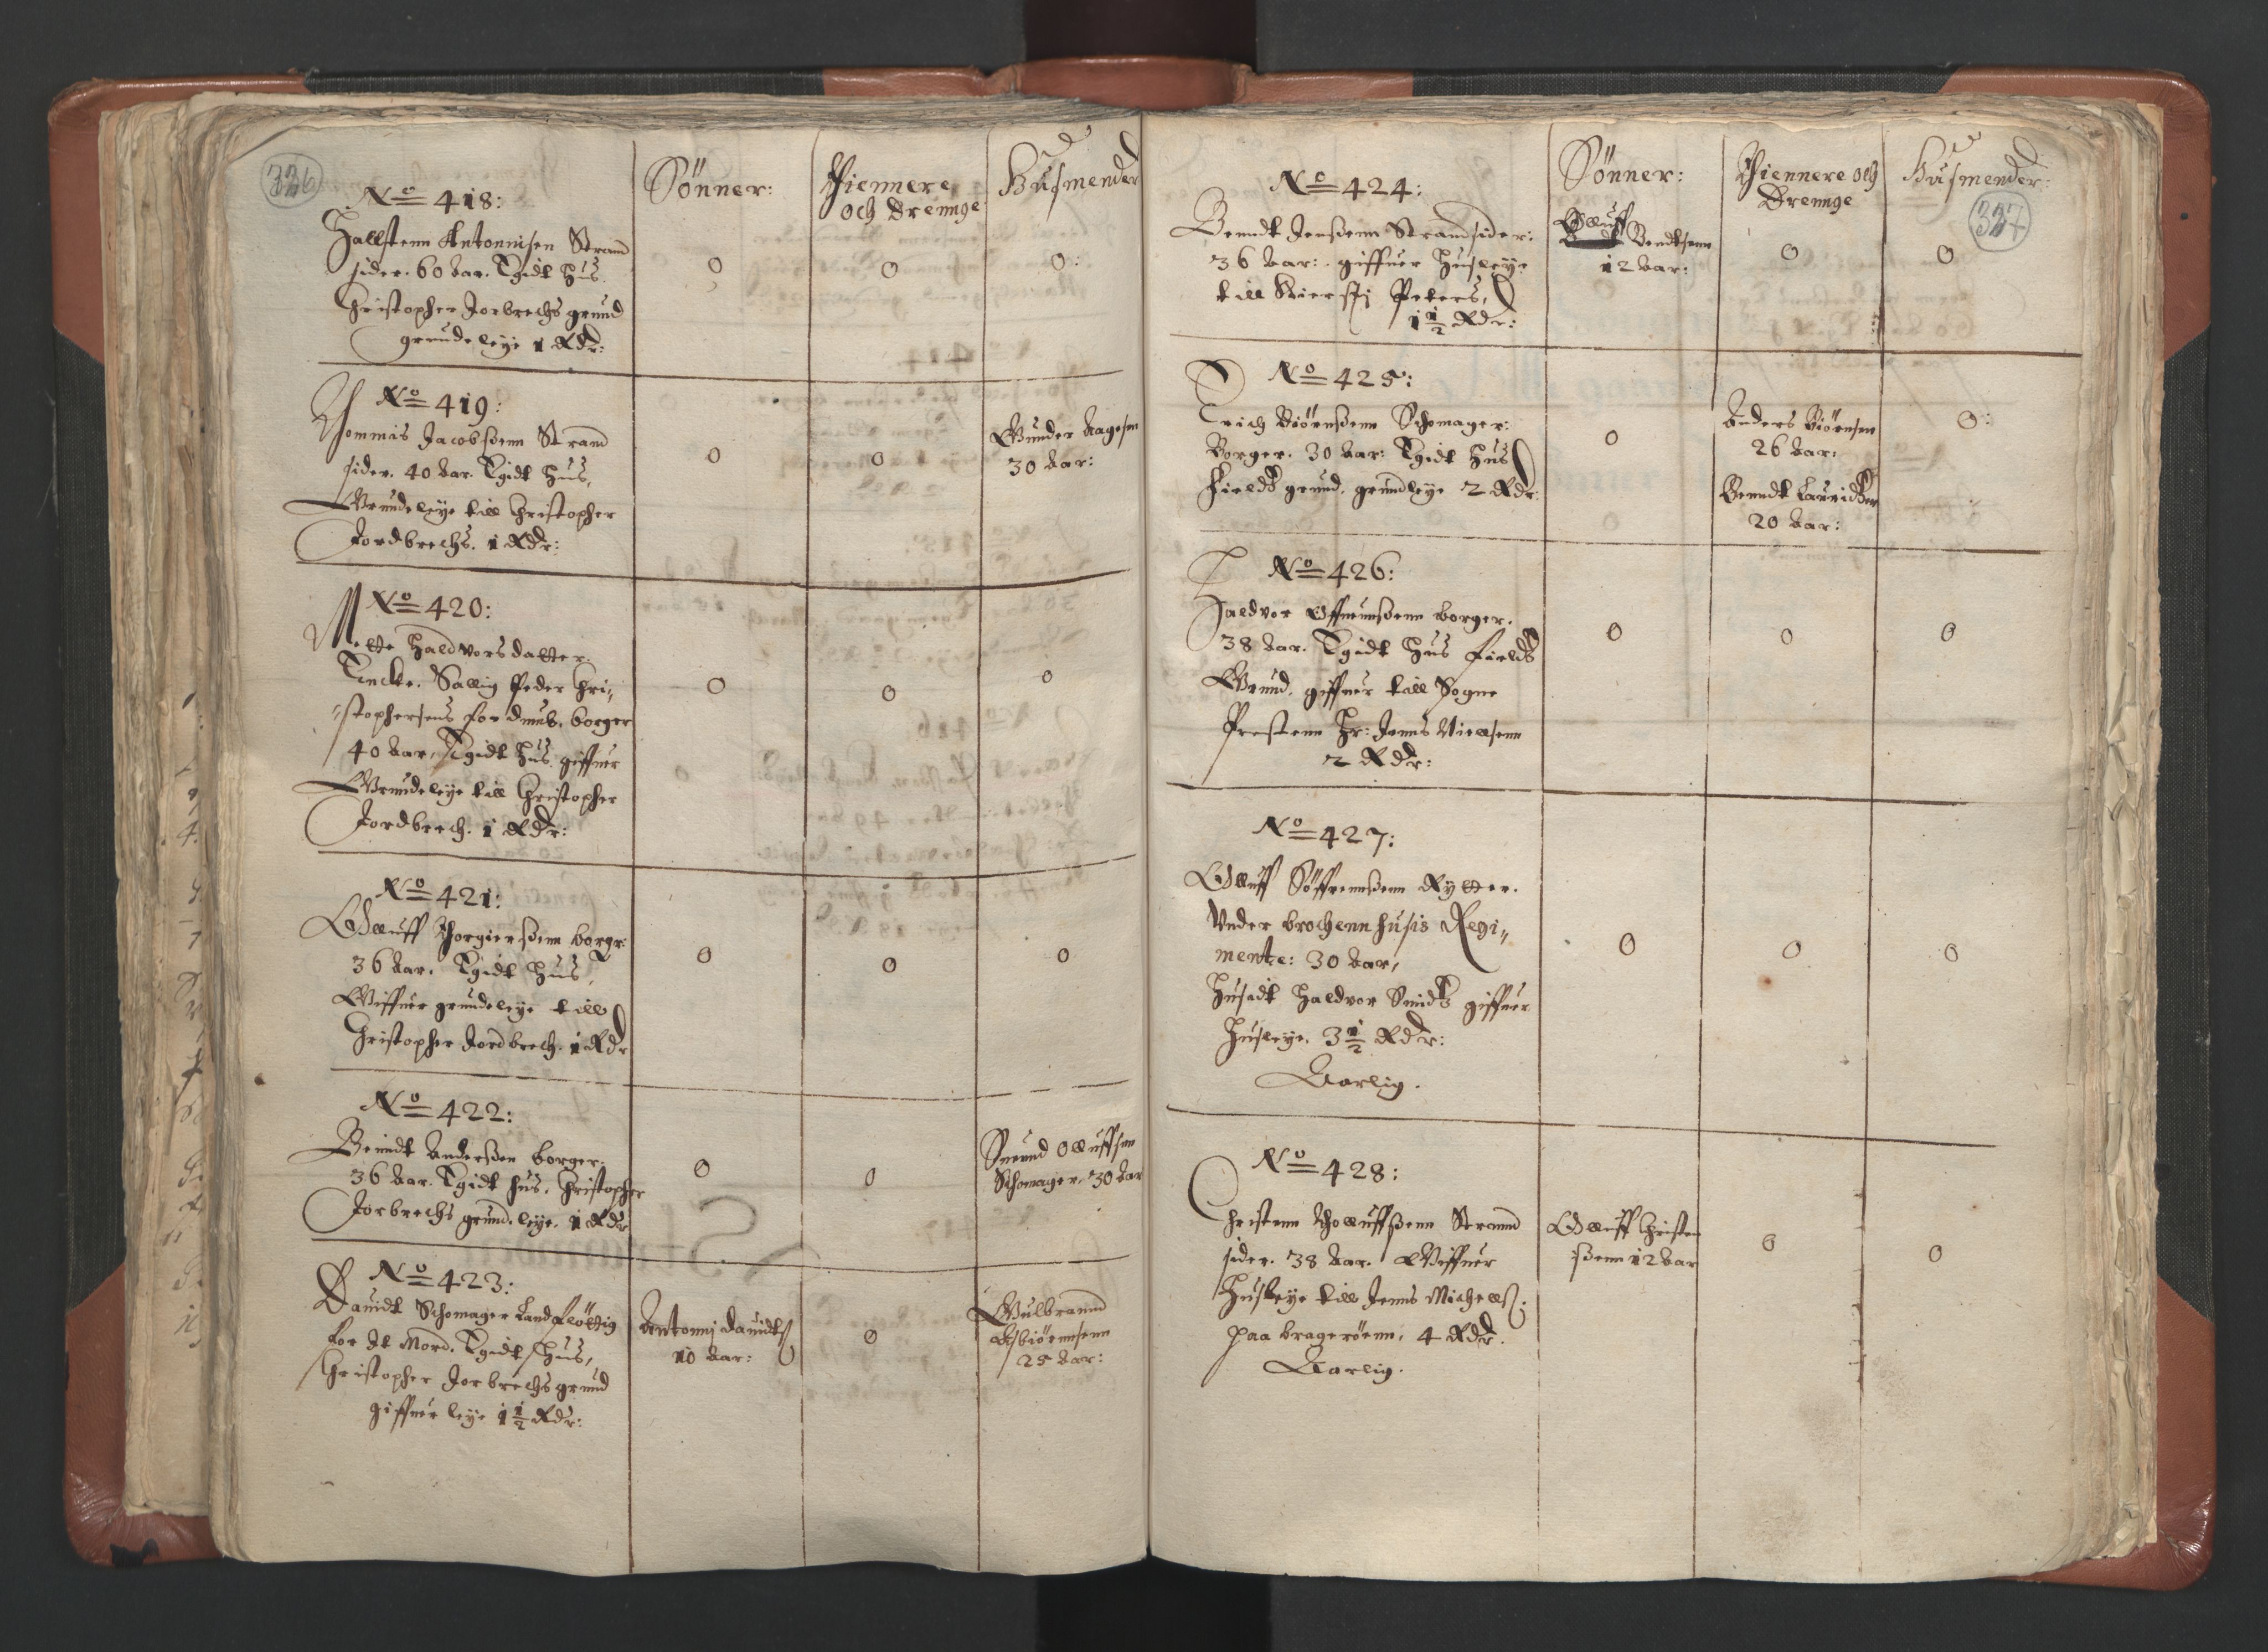 336
Sönner:
Thiennere
och Drennge
Husmender
No 418:
Hallstenn Antonnisen Strand
sider. 60 Aar. Egidt Hus.
Christopher Jorbrechs grund
grundeleye 1 Rdr:
0
0
0:
No 419:
Thommis Jacobßenn Strand
sider. 40 Aar. Egidt Hus,
Grundeleye till Christopher
Jordbrechs. 1 Rdr:
0
0
Gunder Aagesen
30 Aar:
No 420:
Mette Haldvors datter.
Encke. Sallig Peder Chri„
„stophersens fordumb. borger
40 Aar, Egidt Hus. giffuer
Grundeleye till Christopher
Jordbrech. 1 Rdr:
0
0
0
No 421:
Olluff Thorgierßenn borgr:
36 Aar. Egidt Hus,
Giffuer grundeleye till
Christopher Jordbrech. 1 Rdr
0
0
0
No 422:
Benndt Anderßen borger.
36 Aar. Egidt hus. Christopher
Jorbrechs grund. leye. 1 Rdr
0
0
Suend Olluffsen
Schomager. 30 Aar
No 423:
Dauidt Schomager Landfløttig
for It Mord. Egidt Hus,
Christopher Jorbrechs grund
giffuer leye 1 1/2 Rdr:
Antonnj Dauidtß
10 Aar:
0
Gulbrannd
Asbiörnnsenn
25 Aar:
Sönner:
Thiennere och
Drennge
Husmender:
327
No 424:
Benndt Jenßenn Strandsider:
36 Aar: giffuer Husleye
till Kierstj Peters,
1 1/2 Rdr:
Olluff
Bendtsenn
12 Aar:
0
0
No 425:
Erich Biörnßenn Schomager:
Borger. 30 Aar: Egidt Hus
Fields grund. grundleye 2 Rdr:
0
Anders Biörnsen
26 Aar:
Benndt Lauridsen
20 Aar:
0:
No 426:
Haldvor Effuennßenn borger.
38 Aar. Egidt Hus Fields
Grund. giffuer till Sogne
Prestenn Hr: Jenns Nielsenn
2 Rdr:
0
0
0
No 427:
Olluff Söffrennßenn Rytter.
Vnder brochennhusis Regi„
mente: 30 Aar,
Husidt Haldvor Smids giffuer
Husleye. 3 1/2 Rdr:
Aarlig.
0
0
0
No 428:
Christenn Tholluffßenn Strannd
sider. 38 Aar. Giffuer
Husleye till Jenns Michellß:
paa brageröenn. 4 Rdr.
Aarlig.
Olluff Christen
ßenn 12 Aar
0
0